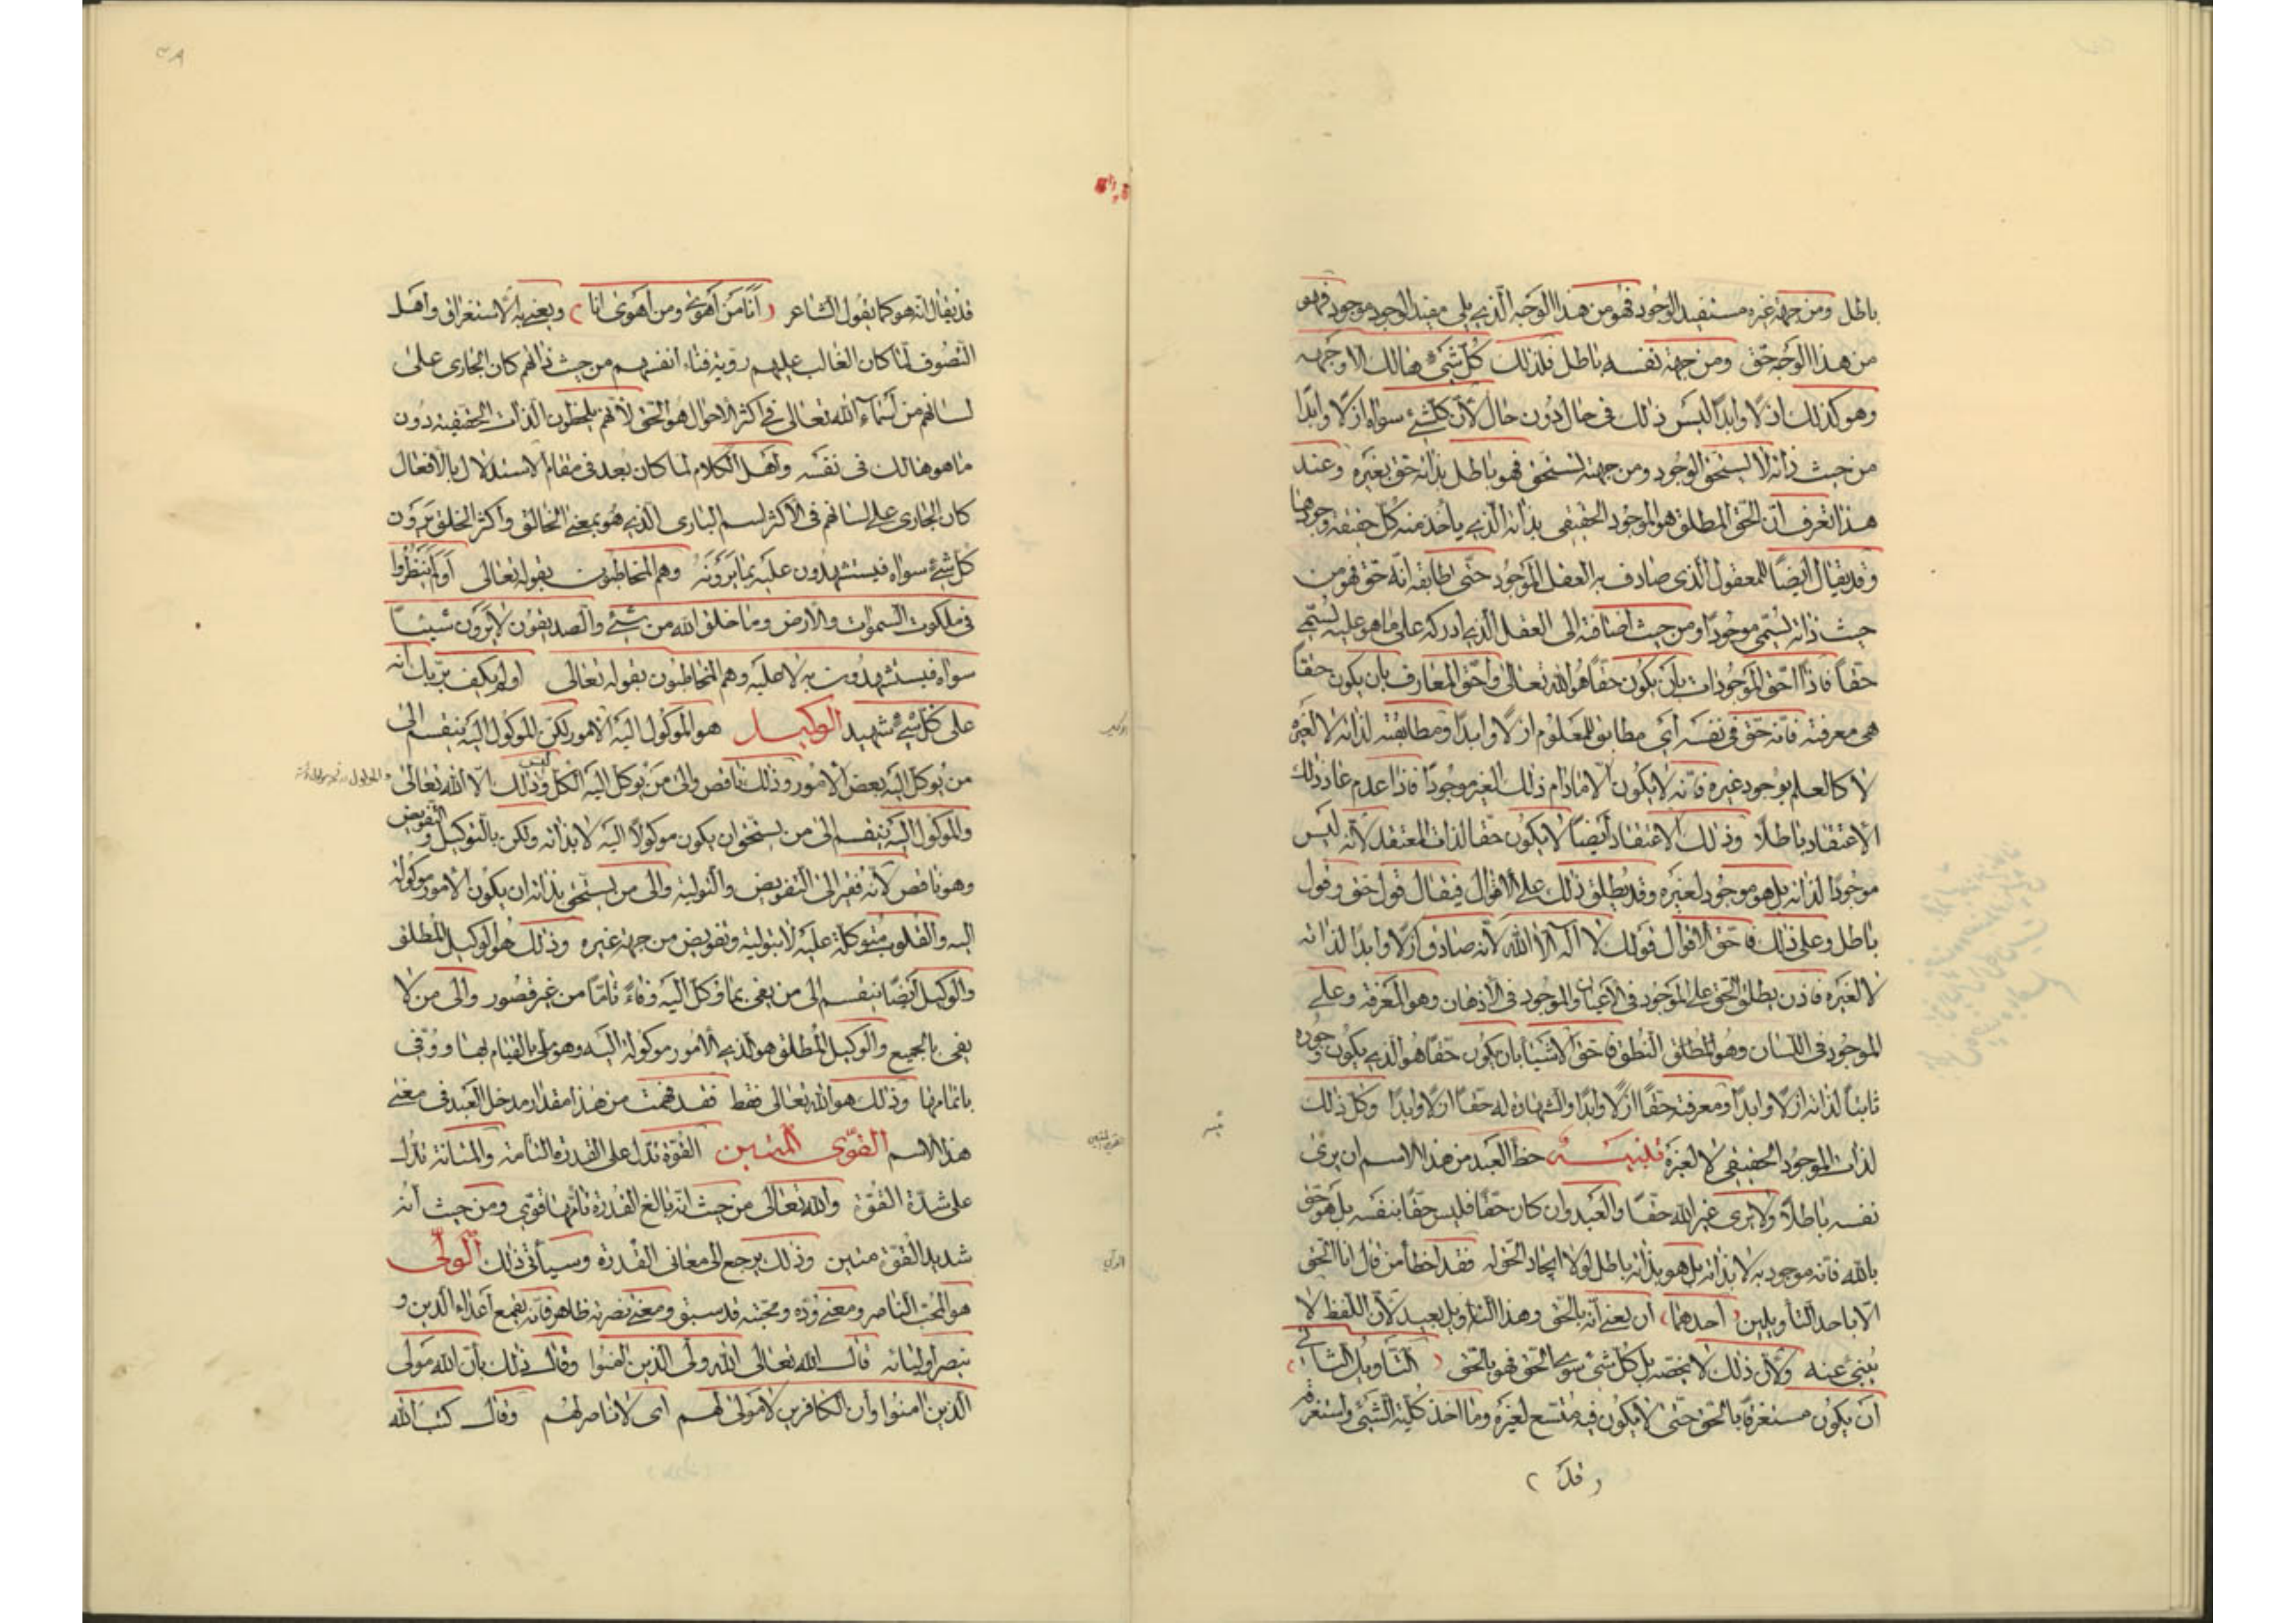 باطل ومن جهة غيره مستفيد الوجود فهو من هذا الوجه الذي يلي مفيد الوجود موجود فهو
من هذا الوجه حق ومن جهة نفسه باطل فلذلك كل شيء هالك الا وجهه
وهو كذلك ازلا وابدا ليس ذلك في حال دون حال لأن كل شئ سواه ازلا وابدا
من حيث ذاته لا يستحق الوجود ومن جهته يستحق فهو باطل بذاته حق بغيره وعند
هذا تعرف ان الحق المطلق هو الموجود الحقيقي بذاته الذي يأخذ منه كل حقيقة وجودها
وقد يقال ايضا للمعقول الذي صادف به العقل الموجود حتى طابقه انه حق فهو من
حيث ذاته يسمى موجودا ومن حيث اضافته الى العقل الذي ادركه على ما هو عليه يسمى
حقا فاذا احق الموجودات بأن يكون حقا هو الله تعالى واحق المعارف بان يكون حقا
هي معرفته فانه حق في نفسه أي مطابق للمعلوم ازلا وابدا ومطابقته لذاته لا لغيره
لا كالعلم بوجود غيره فانه لا يكون الا مادام ذلك الغير موجودا فاذا عدم عاد ذلك
الاعتقاد باطلا وذلك الاعتقاد أيضا لا يكون حقا لذات المعتقد لأنه ليس
موجودا لذاته بل هو موجود لغيره وقد يطلق ذلك على الاقوال فيقال قول حق وقول
باطل وعلى ذلك فاحق الاقوال قولك لا اله الا الله لأنه صادق ازلا وابدا لذاته
لا لغيره فاذن يطلق الحق على الموجود في الاعيان والموجود في الأذهان وهو المعرفة وعلى
الموجود في اللسان وهو المطلق النطق فاحق الاشياء بان يكون حقا هو الذي يكون وجوده
ثابتا لذاته ازلا وابدا ومعرفته حقا ازلا وابدا والشهادة له حقا ازلا وابدا وكل ذلك
لذات الموجود الحقيقي لا لغيره تنبيه حظ العبد من هذا الاسم ان يرى
نفسه باطلا ولا يرى غير الله حقا والعبد وان كان حقا فليس حقا بنفسه بل هو حق
بالله فانه موجود به لا بذاته بل هو بذاته باطل لولا ايجاد الحق له فقد اخطأ من قال انا الحق
الا باحد التأويلين (أحدهما) ان يعني أنه بالحق وهذا التأويل بعيد لأن اللفظ لا
ينبئ عنه ولأن ذلك لا يخصه بل كل شئ سوى الحق فهو بالحق (التأويل الثاني)
أن يكون مستغرقا بالحق حتى لا يكون فيه متسع لغيره وما اخذ كلية الشيء واستغرقه
(قد)
٣٨
قد يقال انه هو كما يقول الشاعر (أنا من أهوى ومن أهوى انا) ويعني به الاستغراق واهل
التصوف لما كان الغالب عليهم رؤية فناء انفسهم من حيث ذاتهم كان الجارى على
لسانهم من اسماء الله تعالى في اكثر الاحوال هو الحق لأنهم يلحظون الذات الحقيقية دون
ما هو هالك في نفسه وأهل الكلام لما كان بعد في مقام الاستدلال بالأفعال
كان الجارى على لسانهم في الأكثر اسم البارى الذي هو بمعنى الخالق وأكثر الخلق يرون
كل شئ سواه فيستشهدون عليه بما يرونه وهم المخاطبون بقوله تعالى أولم ينظروا
في ملكوت السموات والارض وما خلق الله من شئ والصديقون لا يرون شيئا
سواه فيستشهدون به لا عليه وهم المخاطبون بقوله تعالى اولم يكف بربك انه
على كل شئ شهيد الوكيل هو الموكول اليه الامور لكن الموكول اليه ينقسم الى
من يوكل اليه بعض الامور وذلك ناقص والى من يوكل اليه الكل وليس ذلك الا الله تعالى
والموكول اليه ينقسم الى من يستحق ان يكون موكولا اليه لا بذاته ولكن بالتوكيل والتفويض
وهو ناقص لأنه فقير الى التفويض والتولية والى من يستحق بذاته ان يكون الامور موكولة
اليه والقلوب متوكلة عليه لا بتولية وتفويض من جهة غيره وذلك هو الوكيل المطلق
والوكيل أيضا ينقسم الى من يفى بما وكل اليه وفاء تاما من غير قصور والى من لا
يفى بالجميع والوكيل المطلق هو الذي الأمور موكولة اليه وهو ملى بالقيام بها ووفى
باتمامها وذلك هو الله تعالى فقط فقد فهمت من هذا مقدار مدخل العبد في معنى
هذا الاسم القوى المتين القوة تدل على القدرة التامة والمتانة تدل
على شدة القوة والله تعالى من حيث انه بالغ القدرة تامها قوى ومن حيث أنه
شديد القوة متين وذلك يرجع الى معانى القدرة وسيأتى ذلك الولى
هو المحب الناصر ومعنى وده ومحبته قد سبق ومعنى نصرته ظاهر فانه يقمع أعداء الدين و
ينصر أوليائه قال الله تعالى الله ولى الذين امنوا وقال ذلك بأن الله مولى
الذين امنوا وأن الكافرين لا مولى لهم اى لا ناصر لهم وقال كتب الله
الوكيل
القوى المتين
الولى